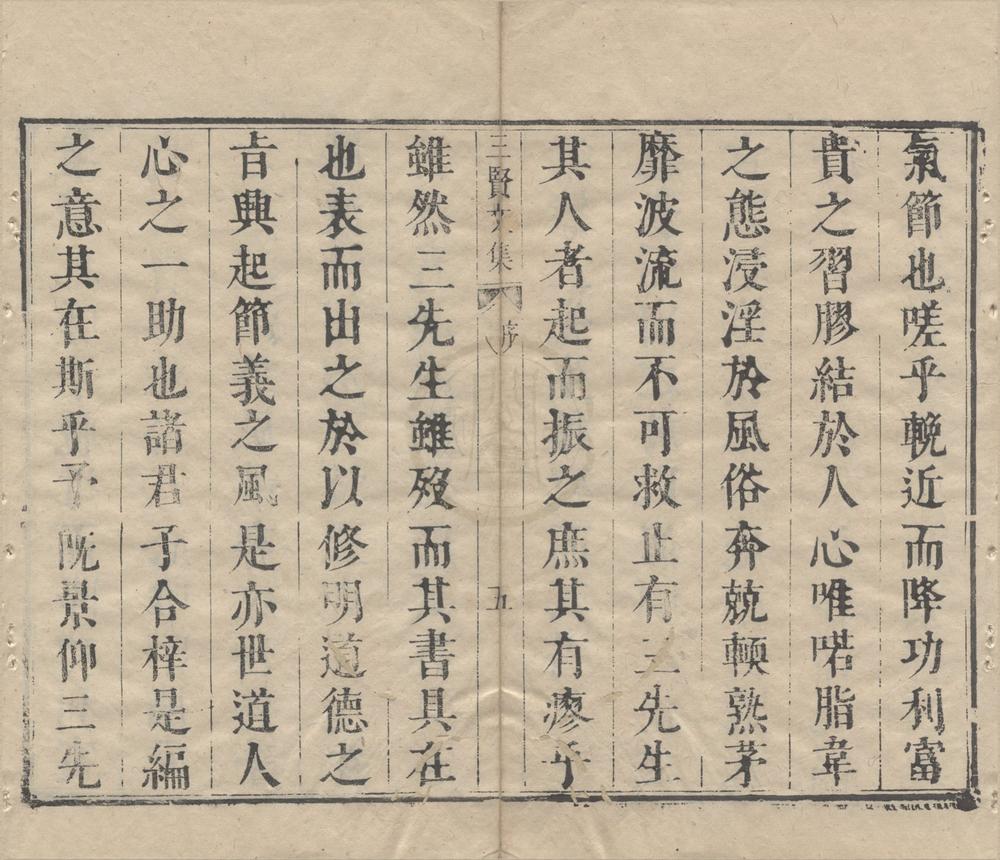 氣節也嗟乎輓近而降功利富
貴之習膠結於人心唯喏脂韋
之態浸淫於風俗奔兢輭熟茅
靡波流而不可救止有三先生
其人者起而振之庶其有瘳乎
三賢文集 序 五
雖然三先生雖歿而其書具在
也表而出之於以修明道德之
㫖興起節義之風是亦世道人
心之一助也諸君子合梓是編
之意其在斯乎予既景仰三先